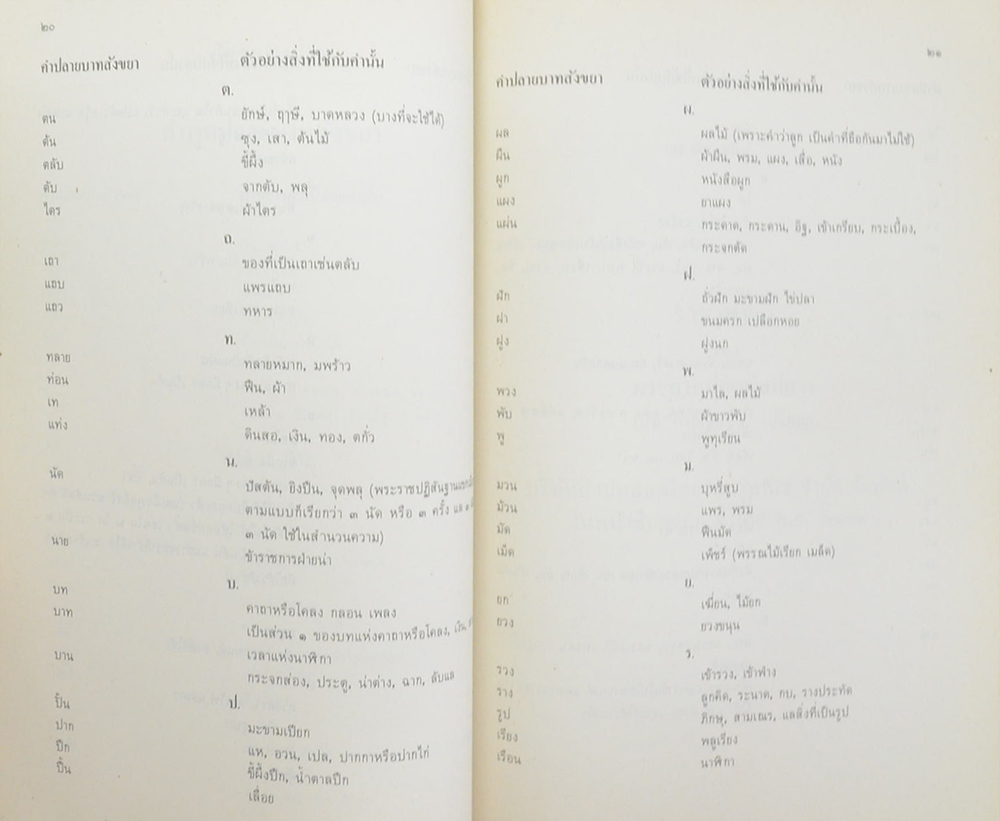 ๒๐
คำปลายบาทสังขยา ตัวอย่างสิ่งที่ใช้กับคำนั้น
ต.
ตน ยักษ์, ฤๅษี, บาดหลวง (บางที่จะใช้ได้)
ต้น ซุง, เสา, ต้นไม้
ตลับ ขี้ผึ้ง
ตับ จากตับ, พลุ
ไตร ผ้าไตร
ถ.
เถา ของที่เป็นเถาเช่นตลับ
แถบ แพรแถบ
แถว ทหาร
ท.
ทลาย ทลายหมาก, มพร้าว
ท่อน ฟืน, ผ้า
เท เหล้า
แท่ง ดินสอ, เงิน, ทอง, ตกั่ว
น.
นัด ปัสตัน, ยิงปืน, จุดพลุ (พระราชปฏิสันฐาน
ตามแบบก็เรียกว่า ๓ นัด หรือ ๓ ครั้ง แล
๓ นัด ใช้ในสำนวนความ)
นาย ข้าราชการฝ่ายน่า
บ.
บท คาถาหรือโคลง กลอน เพลง
บาท เป็นส่วน ๑ ของบทแห่งคาถาหรือโคลง, เงิน,
เวลาแห่งนาฬิกา
บาน กระจกส่อง, ประตู, น่าต่าง, ฉาก, ลับแล
ป.
ปั้น มะขามเปียก
ปาก แห, อวน, เปล, ปากกาหรือปากไก่
ปึก ขี้ผึ้งปึก, น้ำตาลปึก
ปื้น เลื่อย
๒๑
คำปลายบาทสังขยา ตัวอย่างสิ่งที่ใช้กับคำนั้น
ผ.
ผล ผลไม้ (เพราะคำว่าลูก เป็นคำที่ถือกันมาไม่ใช้)
ผืน ผ้าผืน, พรม, แผง, เสื่อ, หนัง
ผูก หนังสือผูก
แผง ยาแผง
แผ่น กระดาด, กระดาน, อิฐ, เข้าเกรียบ, กระเบื้อง,
กระจกตัด
ฝ.
ฝัก ถั่วฝัก มะขามฝัก ไข่ปลา
ฝา ขนมครก เปลือกหอย
ฝูง ฝูงนก
พ.
พวง มาไล, ผลไม้
พับ ผ้าขาวพับ
พู พูทุเรียน
ม.
มวน บุหรี่สูบ
ม้วน แพร, พรม
มัด ฟืนมัด
เม็ด เพ็ชร์ (พรรณไม้เรียก เมล็ด)
ย.
ยก เฆี่ยน, ไม้ยก
ยวง ยวงขนุน
ร.
รวง เข้ารวง, เข้าฟ่าง
ราง ลูกคิด, ระนาด, กบ, รางประทัด
รูป ภิกษุ, สามเณร, แลสิ่งที่เป็นรูป
เรียง พลูเรียง
เรือน นาฬิกา